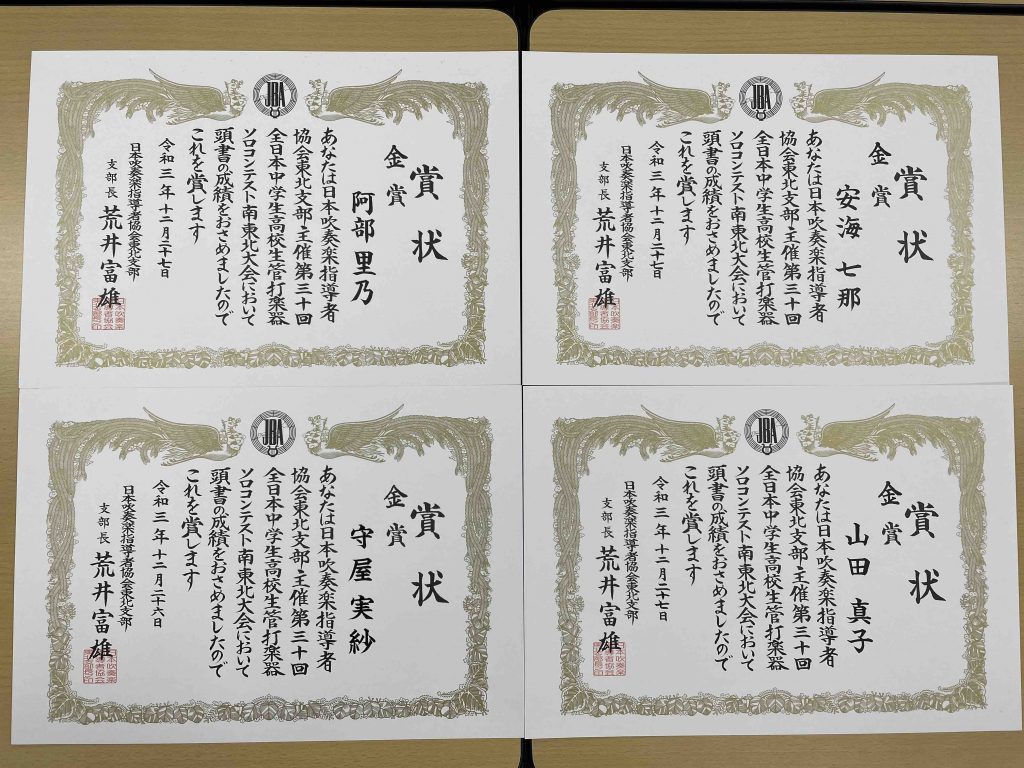 JBA
賞状
金賞
阿部里乃
あなたは日本吹奏楽指導者
協会東北支部主催第三十回
全日本中学生高校生管打楽器
ソロコンテスト南東北大会において
頭書の成績をおさめましたので
これを賞します
令和三年十二月二十七日
日本吹奏楽指導者協会東北支部
支部長 荒井富雄
JBA
賞状
金賞
安海七那
あなたは日本吹奏楽指導者
協会東北支部主催第三十回
全日本中学生高校生管打楽器
ソロコンテスト南東北大会において
頭書の成績をおさめましたので
これを賞します
令和三年十二月二十七日
日本吹奏楽指導者協会東北支部
支部長 荒井富雄
JBA
賞状
金賞
守屋実紗
あなたは日本吹奏楽指導者
協会東北支部主催第三十回
全日本中学生高校生管打楽器
ソロコンテスト南東北大会において
頭書の成績をおさめましたので
これを賞します
令和三年十二月二十六日
日本吹奏楽指導者協会東北支部
支部長 荒井富雄
JBA
賞状
金賞
山田真子
あなたは日本吹奏楽指導者
協会東北支部主催第三十回
全日本中学生高校生管打楽器
ソロコンテスト南東北大会において
頭書の成績をおさめましたので
これを賞します
令和三年十二月二十七日
日本吹奏楽指導者協会東北支部
支部長 荒井富雄